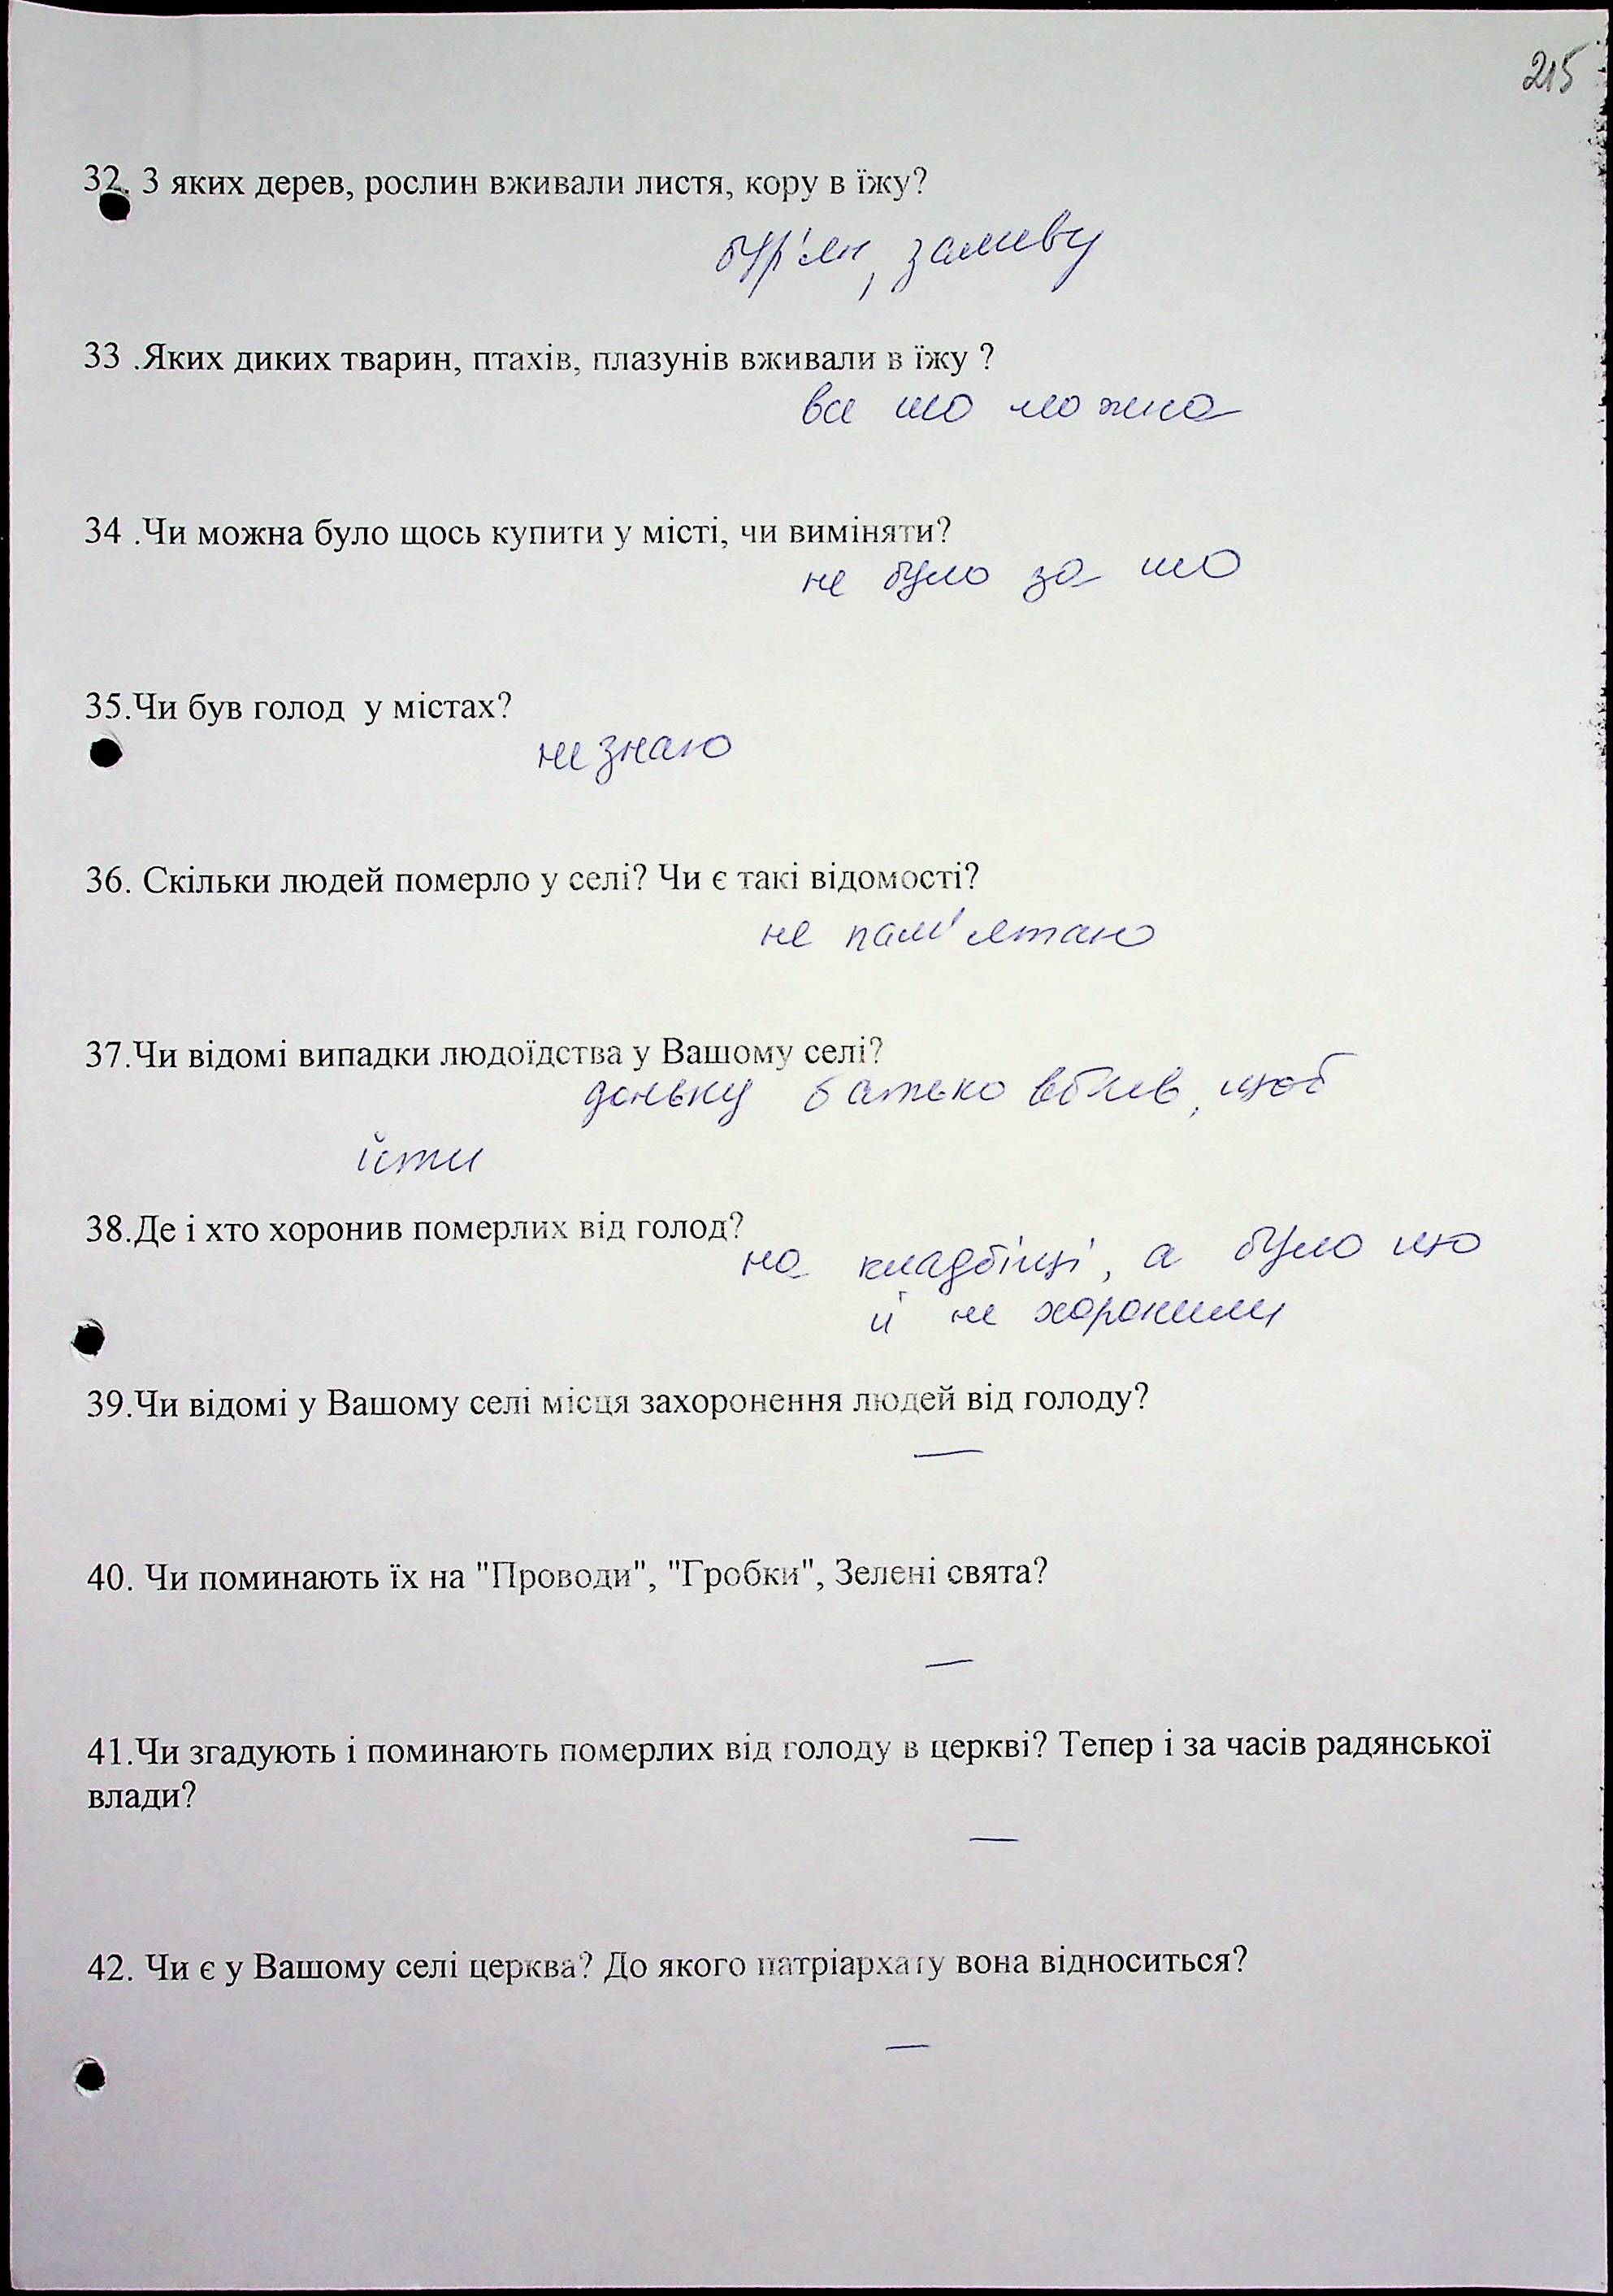 215
32. З яких дерев, рослин вживали листя, кору в їжу?
бур'ян, заливу
33 .Яких диких тварин, птахів, плазунів вживали в їжу ?
все шо можна
34 .Чи можна було щось купити у місті, чи виміняти?
не було за шо
35.Чи був голод у містах?
не знаю
36. Скільки людей померло у селі? Чи є такі відомості?
не пам'ятаю
37.Чи відомі випадки людоїдства у Вашому селі?
доньку батько вбив, щоб
їсти
38.Де і хто хоронив померлих від голод?
на кладбіщі, а було шо
й не хоронили
39.Чи відомі у Вашому селі місця захоронення людей від голоду?
—
40. Чи поминають їх на "Проводи", "Гробки", Зелені свята?
—
41.Чи згадують і поминають померлих від голоду в церкві? Тепер і за часів радянської
влади?
—
42. Чи є у Вашому селі церква? До якого патріархату вона відноситься?
—